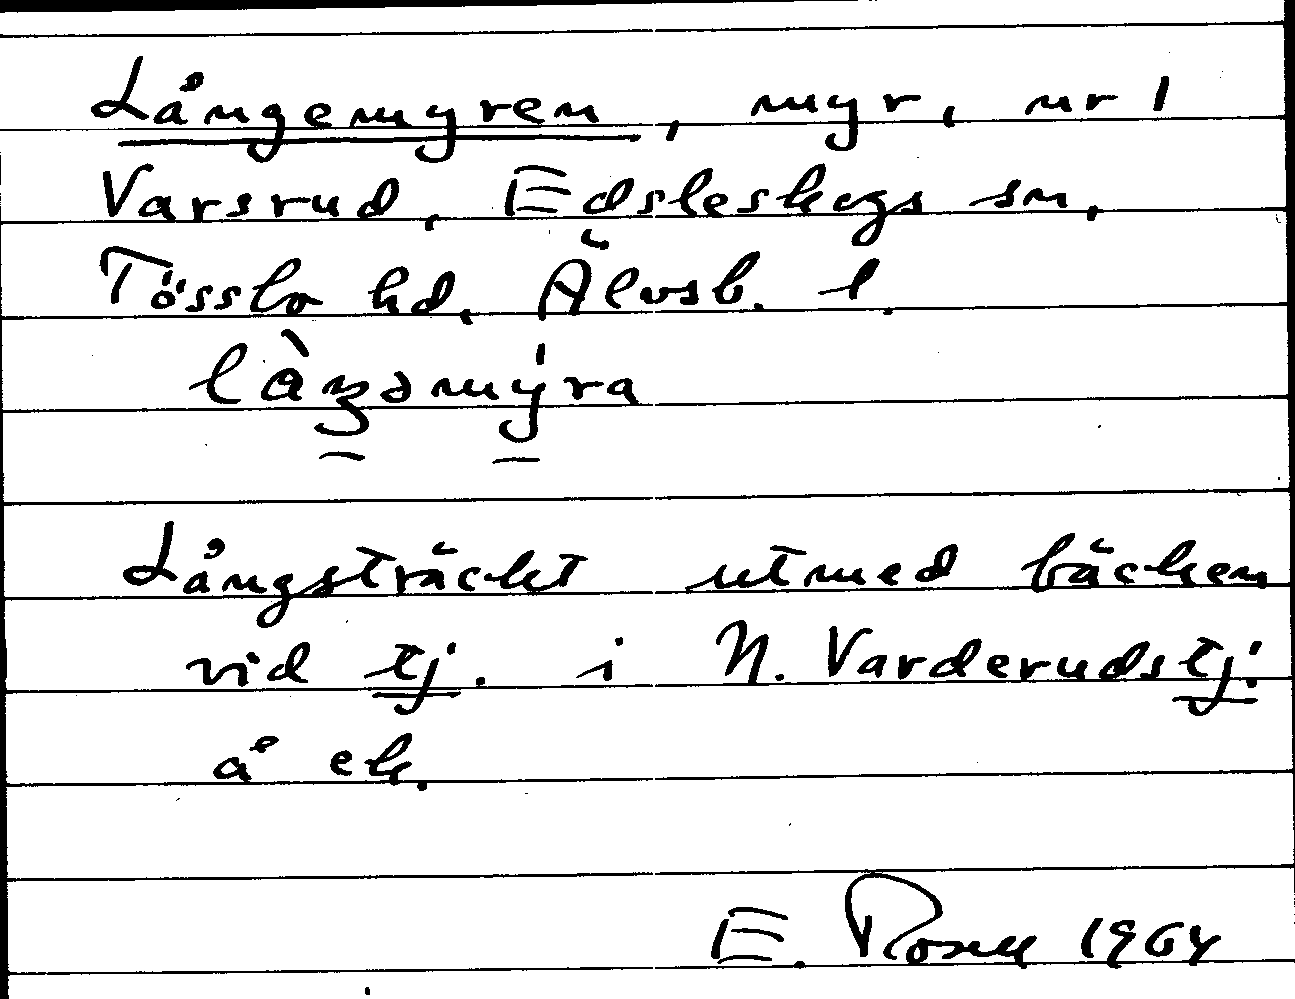 Långemyren, myr, nr 1
Varsrud, Edsleskogs sn,
Tössbo hd, Älvsb. l.
làŋəmy̍ra
Långsträckt utmed bäcken
vid tj. i N. Varderudstj.
å ek.
E. Rosell 1964